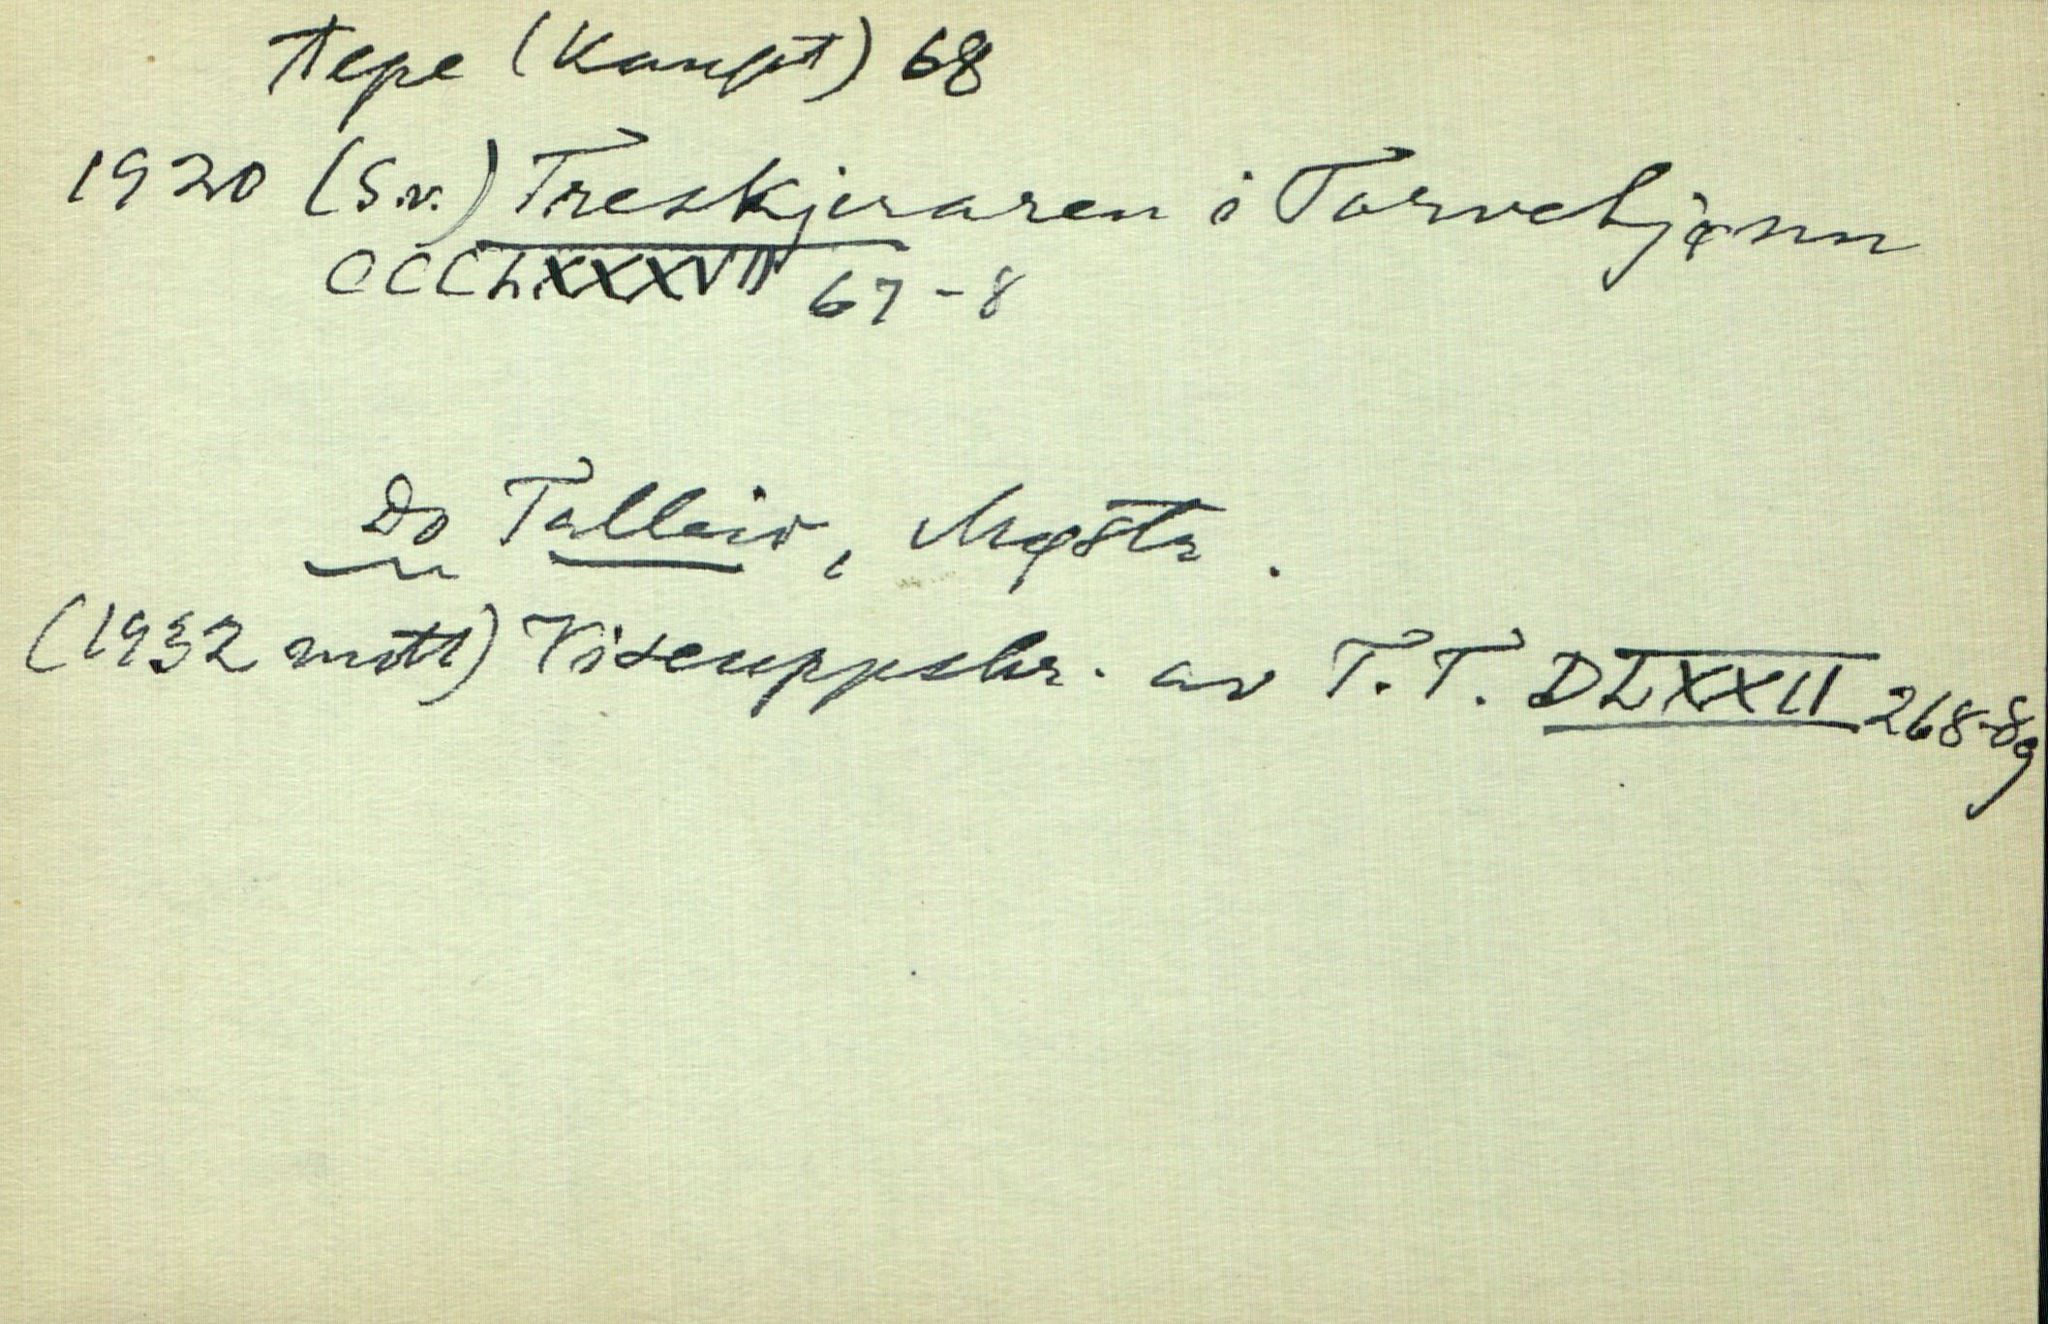 tepe (Kaupt) 68
1920 (S.v.) Treskjeraren i Torvetjønn
CCCLXXXVII 67-8
Do Talleiv, Møstr.
(1932 mott) Viseuppskr. av T.T. DLXXII 268-89